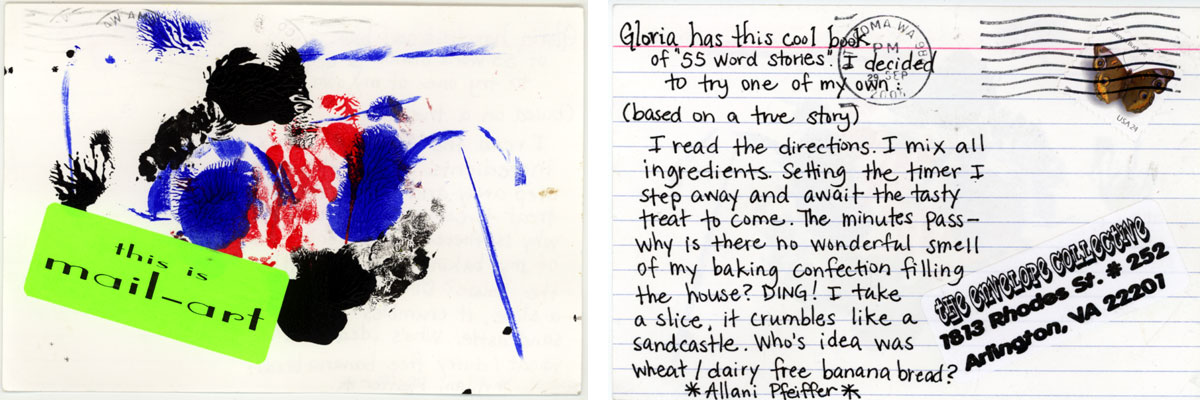 this is
mail-art
Gloria has this cool book
of "55 word stories." I decided
to try one of my own:
(based on a true story)
I read the directions. I mix all
ingredients. Setting the timer I
step away and await the tasty
treat to come. The minutes pass—
why is there no wonderful smell
of my baking confection filling
the house? DING! I take
a slice, it crumbles like a
sandcastle. Who's idea was
wheat/dairy free banana bread?
*Allani Pfeiffer*
TACOMA WA
PM
29 SEP
USA 24
the Envelope Collective
1813 Rhodes St. # 252
Arlington, VA 22201